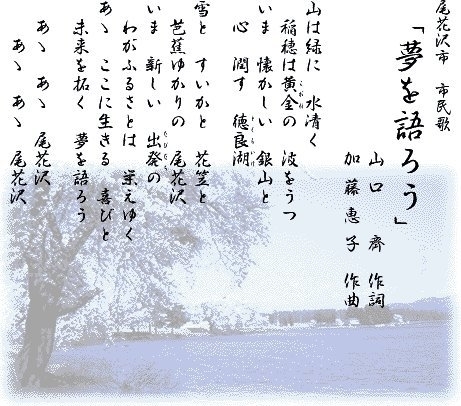 尾花沢市 市民歌
「夢を語ろう」
山口 齊 作詞
加藤恵子 作曲
山は緑に 水清く
稲穂は黄金の 波をうつ
いま 懐かしい 銀山と
心 潤す 徳良湖
雪と すいかと 花笠と
芭蕉ゆかりの 尾花沢
いま 新しい 出発の
わがふるさとは 栄えゆく
あゝ ここに生きる 喜びと
未来を拓く 夢を語ろう
あゝ あゝ 尾花沢
あゝ あゝ 尾花沢